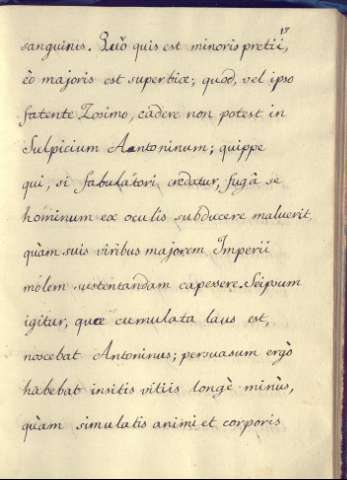 17
sanguinis. Quò quis est minoris pretii,
èo majoris est superbiæ; quod, vel ipso
fatente Zosimo, cadere non potest in
Sulpicium Antoninum; quippe
qui, si fabulatori credatur, fugâ se
hominum ex oculis subducere maluerit,
quàm suis viribus majorem Imperii
molem sustentandam capessere. Seipsum
igitur, quæ cumulata laus est,
noscebat Antoninus; persuasum ergò
habebat insitis vitiis longè minùs,
quàm simulatis animi et corporis